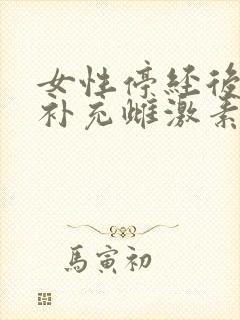 女性停经後
补充雌激素
馬寅初